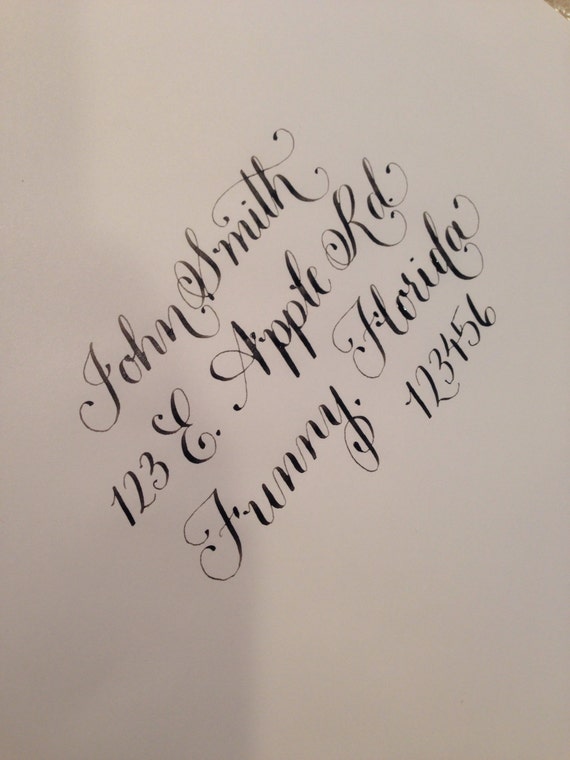 John Smith
123 E. Apple Rd.
Funny, Florida
123456